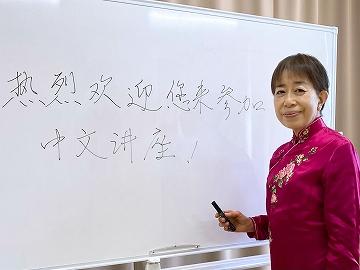 热烈欢迎您来参加
中文讲座!